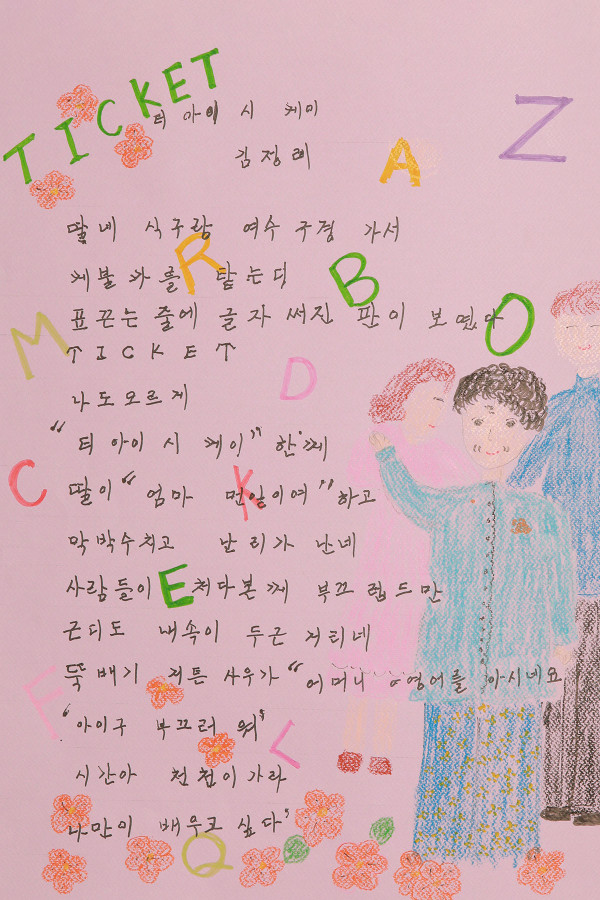 TICKET
티 아이 시 케이
김정례
A
Z
딸네 식구랑 여수 구경 가서
R
케불카를 탔는디
B
표끈는 줄에 글자 써진 판이 보였다
O
M
TICKET
D
나도모르게
“티 아이 시 케이” 한께
C
K
딸이 “엄마 먼일이여” 하고
막 박수치고 난리가 난네
E
사람들이 처다본께 부끄럽드만
근디도 내속이 두근거리네
뚝배기 겉튼 사우가 “어머니 영어를 아시네요
F
‘아이구 부끄러워’
L
시간아 천천이가라
나만이 배우고 싶다’
Q